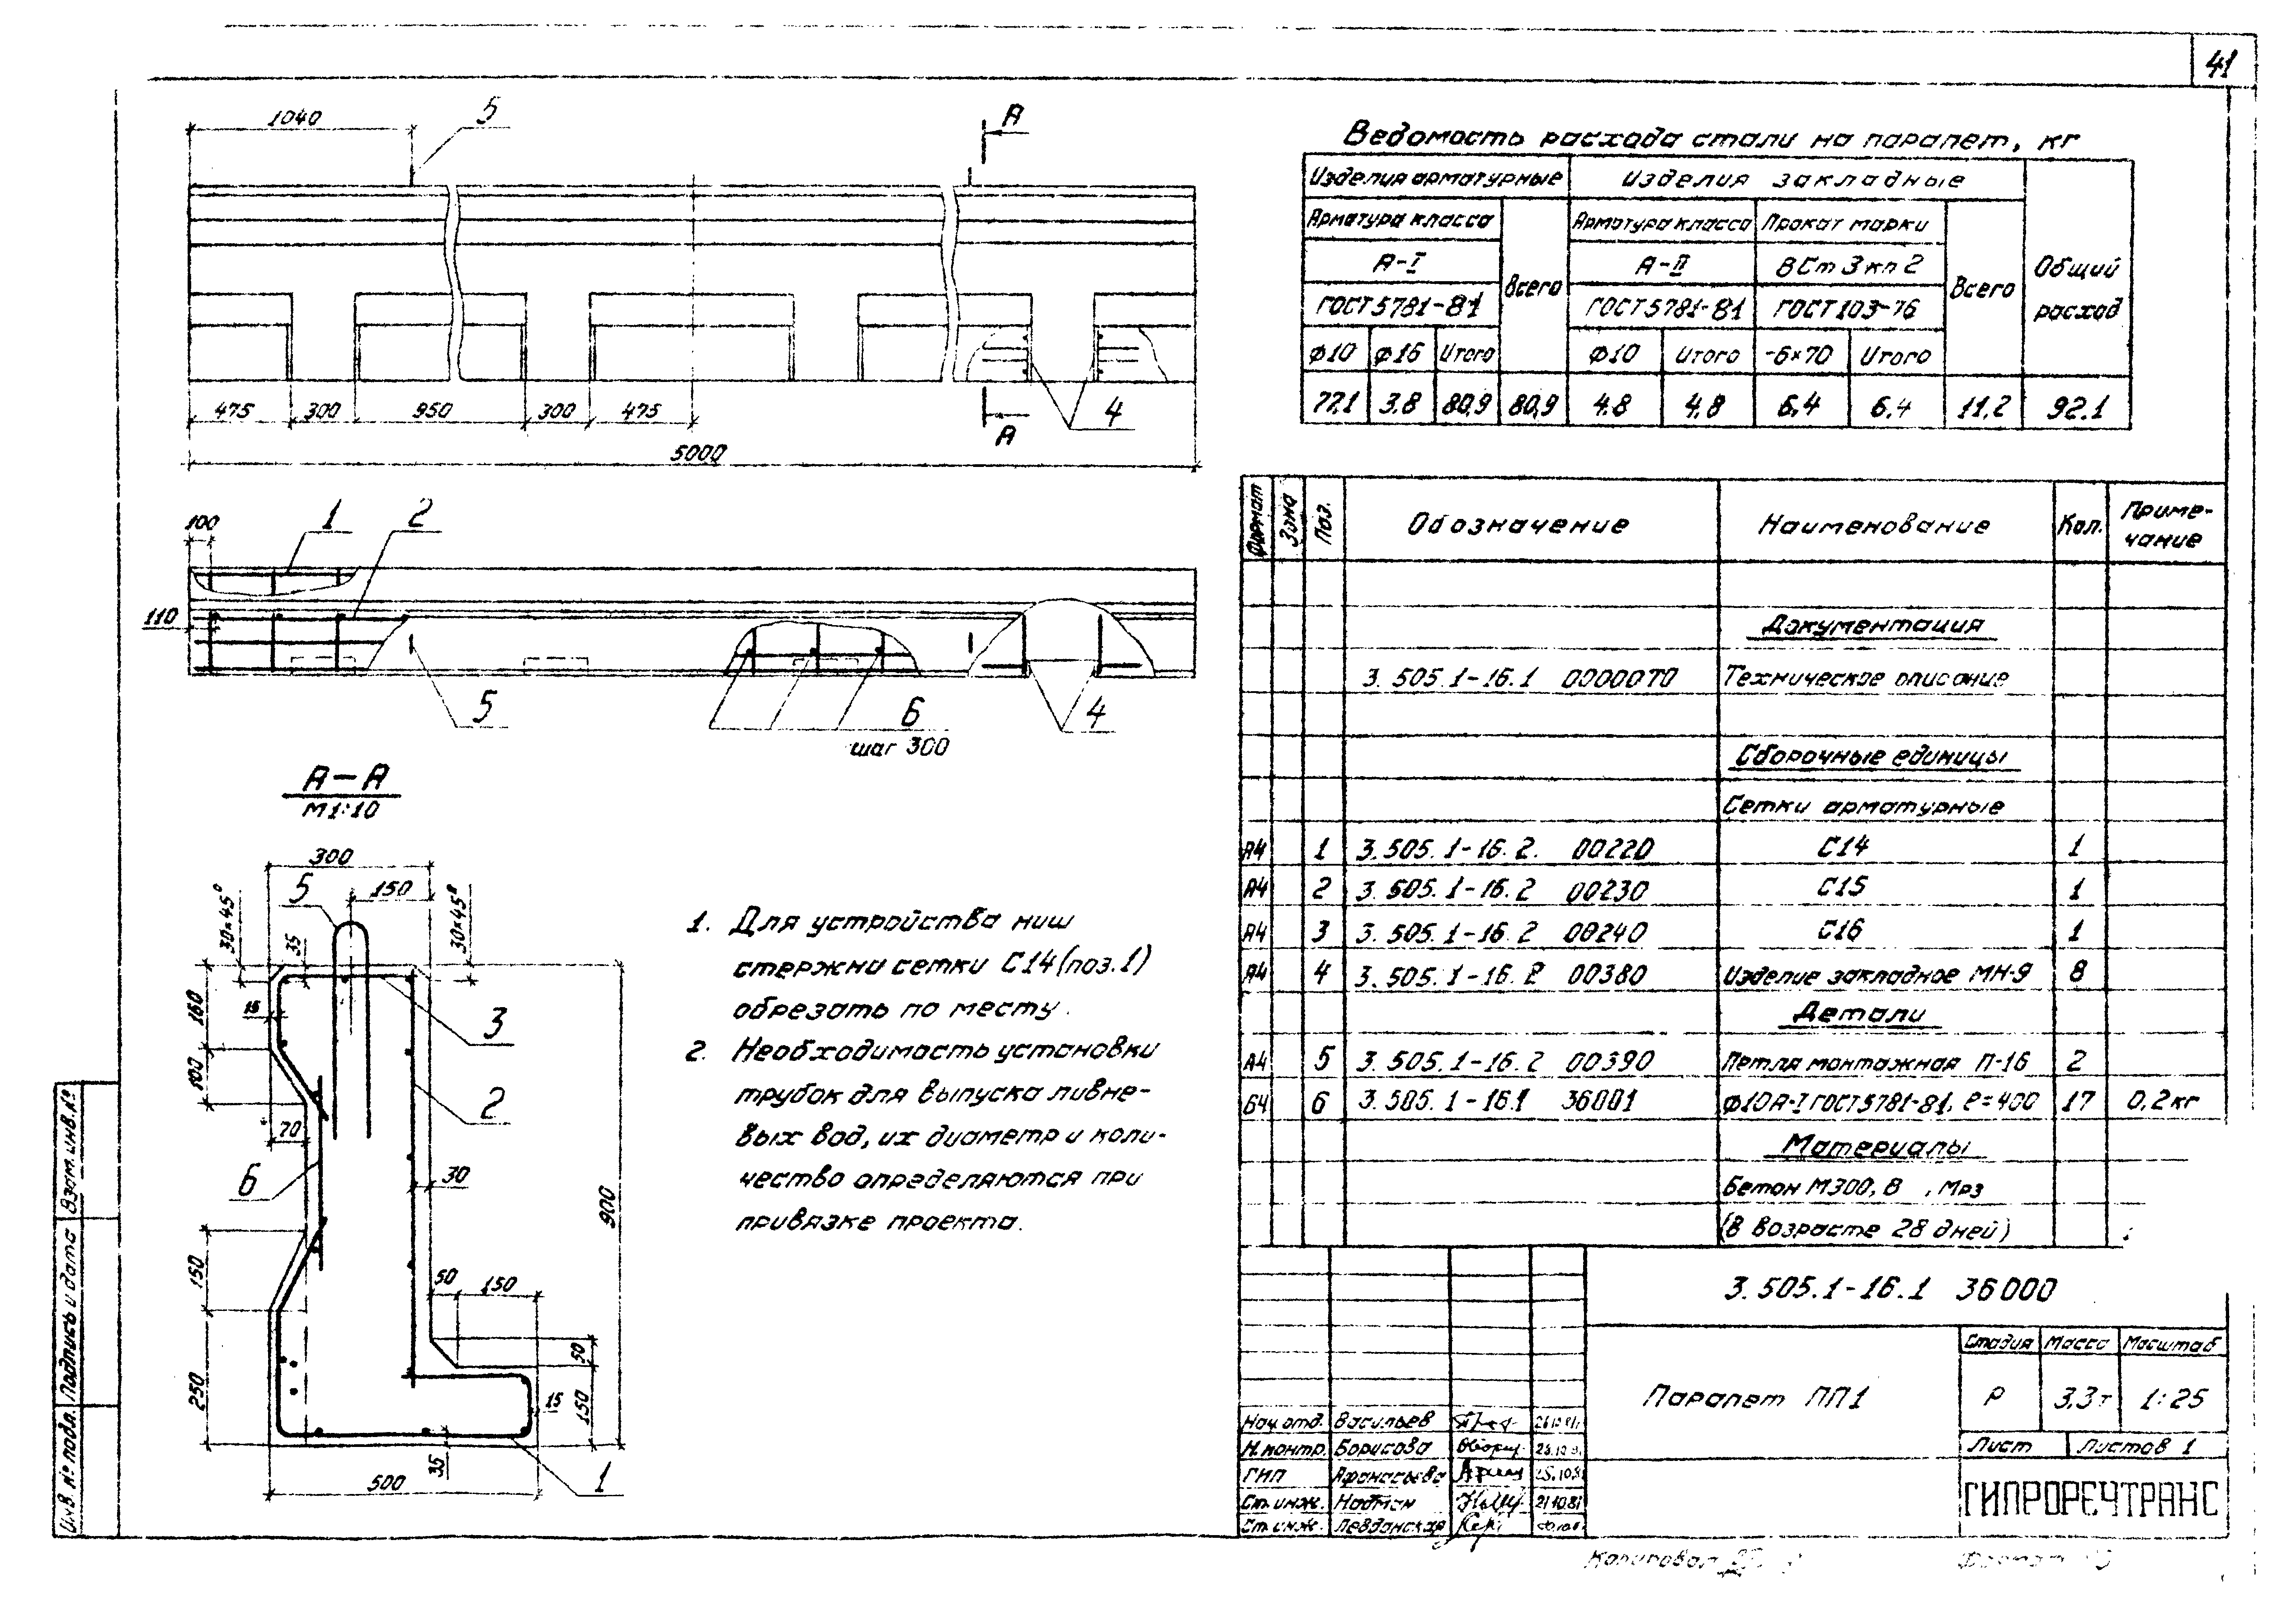 41
1040
5
А
475
300
950
300
475
А
4
5000
100
1
2
110
5
6
шаг 300
4
А-А
М1:10
300
5
150
30×45°
35
30×45°
160
15
3
100
2
70
6
30
900
150
50
150
50
250
15
150
35
500
1
1. Для устройства ниш
стержни сетки С14 (поз.1)
обрезать по месту.
2. Необходимость установки
трубок для выпуска ливне-
вых вод, их диаметр и коли-
чество определяются при
привязке проекта.
Ведомость расхода стали на парапет, кг
Изделия арматурные
Изделия закладные
Общий расход
Арматура класса
Всего
Арматура класса
Прокат марки
Всего
А-I
А-II
ВСт3кп2
ГОСТ 5781-81
ГОСТ 5781-81
ГОСТ 103-76
ф10 ф16 Итого ф10 Итого -6×70 Итого
77,1 3.8 80,9 80,9 4.8 4.8 6,4 6.4 11,2 92.1
Формат Зона Поз. Обозначение Наименование Кол. Приме-
чание
Документация
3.505.1-16.1 00000ТО Техническое описание
Сборочные единицы
Сетки арматурные
А4 1 3.505.1-16.2. 00220 С14 1
А4 2 3.505.1-16.2 00230 С15 1
А4 3 3.505.1-16.2 00240 С16 1
А4 4 3.505.1-16.2 00380 Изделие закладное МН-9 8
Детали
А4 5 3.505.1-16.2 00390 Петля монтажная П-16 2
Б4 6 3.505.1-16.1 36001 ф10А-I ГОСТ5781-81, ℓ=400 17 0,2кг
Материалы
Бетон М300, В , Мрз
(в возрасте 28 дней)
3.505.1-16.1 36000
Парапет ПП1
Стадия Масса Масштаб
Р 3.3т 1:25
Лист Листов 1
ГИПРОРЕЧТРАНС
Нач. отд. Васильев
Н. контр. Борисова
ГИП Афанасьева
Ст. инж. Надтан 21.10.81
Ст. инж. Левданская
Копировал
Инв. № подл. Подпись и дата Взам. инв. №